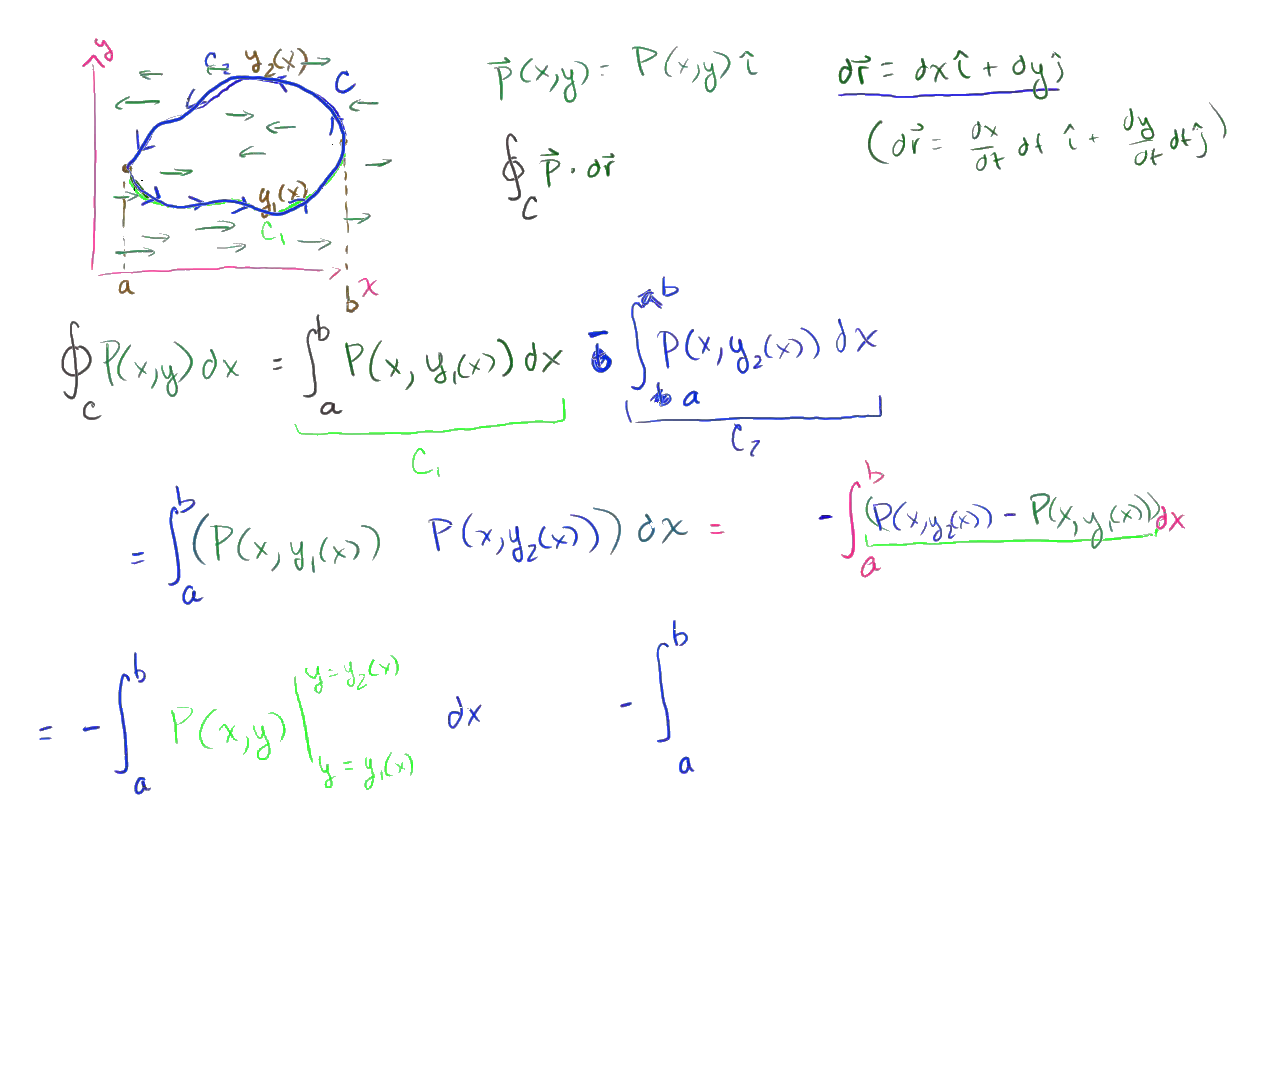 y
C₂ y₂(x)
C
y₁(x)
C₁
a
b x
P⃗(x,y) = P(x,y) î
dr⃗ = dx î + dy ĵ
(dr⃗ = dx/dt dt î + dy/dt dt ĵ)
∮_C P⃗ · dr⃗
∮_C P(x,y) dx = ∫_a^b P(x, y₁(x)) dx - ∫_a^b P(x, y₂(x)) dx
C₁ C₂
= ∫_a^b (P(x, y₁(x)) P(x, y₂(x))) dx = - ∫_a^b (P(x, y₂(x)) - P(x, y₁(x))) dx
= - ∫_a^b P(x,y) |_{y = y₁(x)}^{y = y₂(x)} dx - ∫_a^b